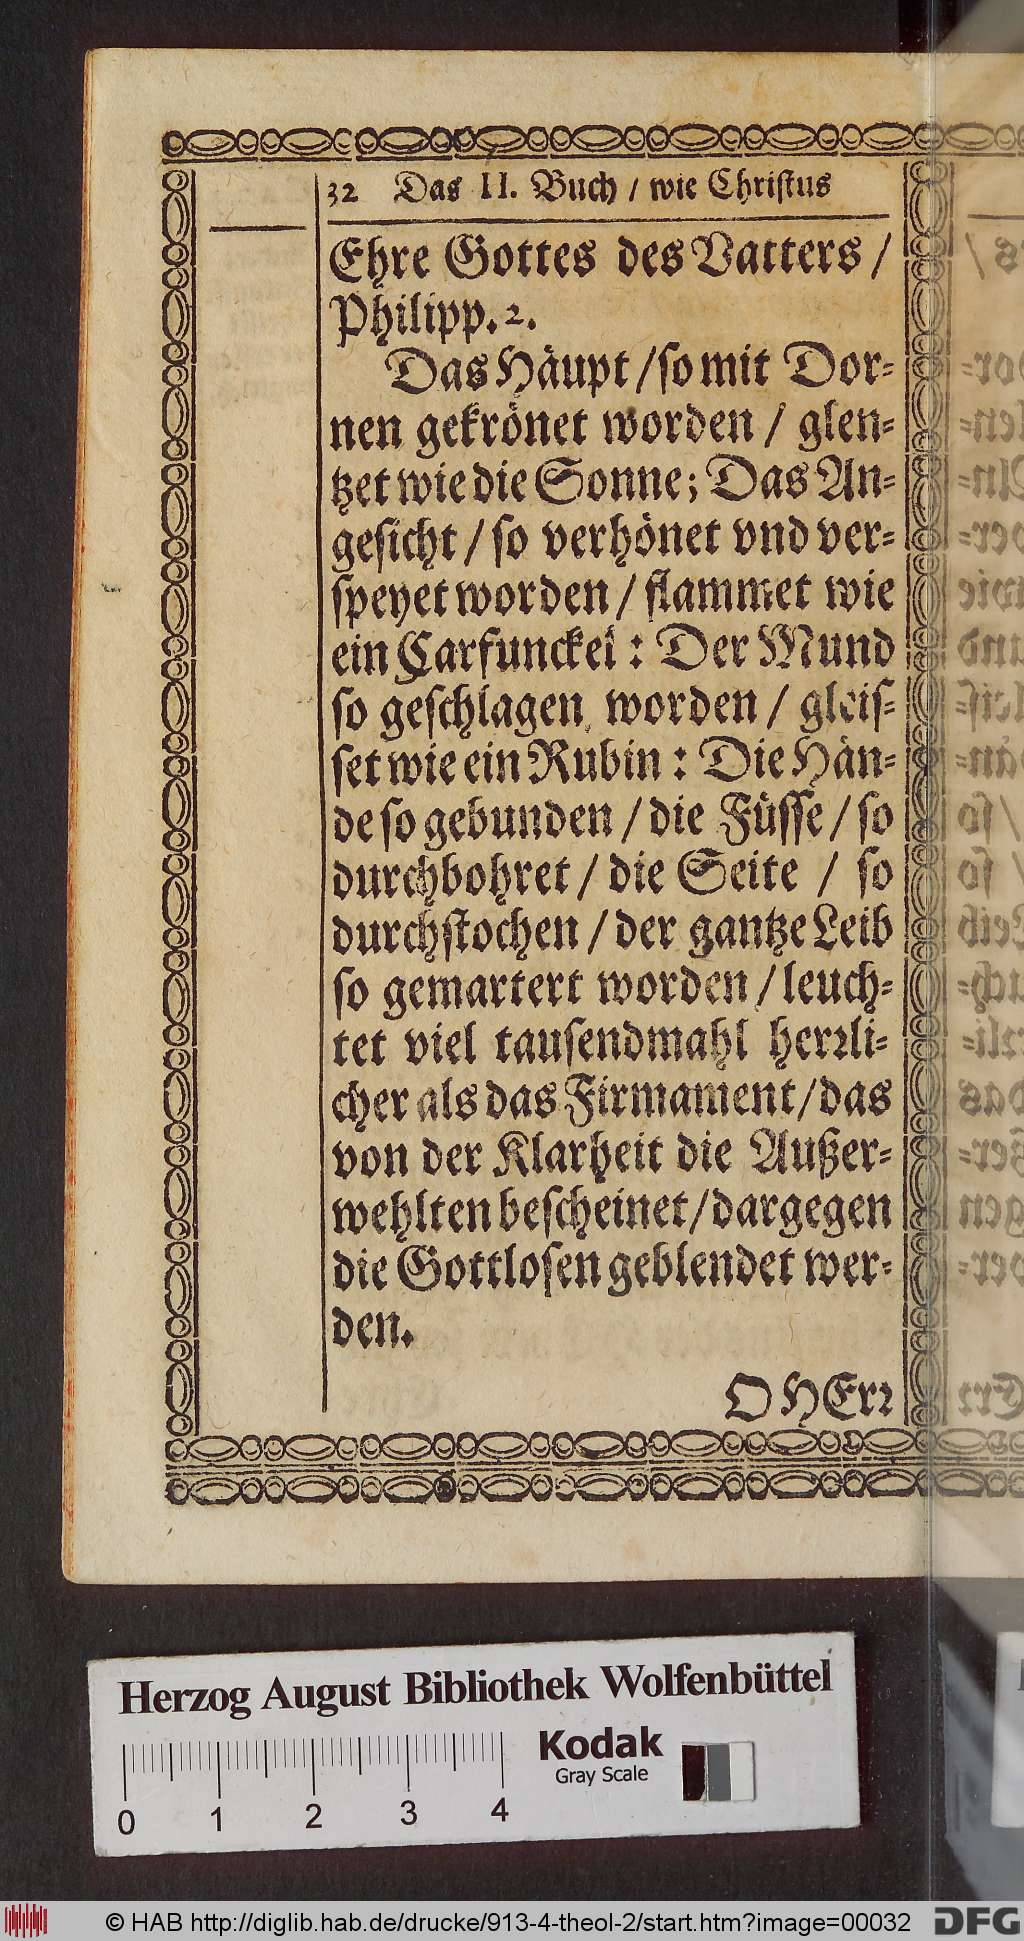 32 Das II. Buch / wie Christus
Ehre Gottes des Vatters /
Philipp. 2.
Das Häupt / so mit Dor-
nen gekrönet worden / glen-
tzet wie die Sonne; Das An-
gesicht / so verhönet vnd ver-
speyet worden / flammet wie
ein Carfunckel : Der Mund
so geschlagen worden / gleis-
set wie ein Rubin : Die Hän-
de so gebunden / die Füsse / so
durchbohret / die Seite / so
durchstochen / der gantze Leib
so gemartert worden / leuch-
tet viel tausendmahl herrli-
cher als das Firmament / das
von der Klarheit die Außer-
wehlten bescheinet / dargegen
die Gottlosen geblendet wer-
den.
O HErr
Herzog August Bibliothek Wolfenbüttel
Kodak
Gray Scale
0 1 2 3 4
© HAB http://diglib.hab.de/drucke/913-4-theol-2/start.htm?image=00032
DFG